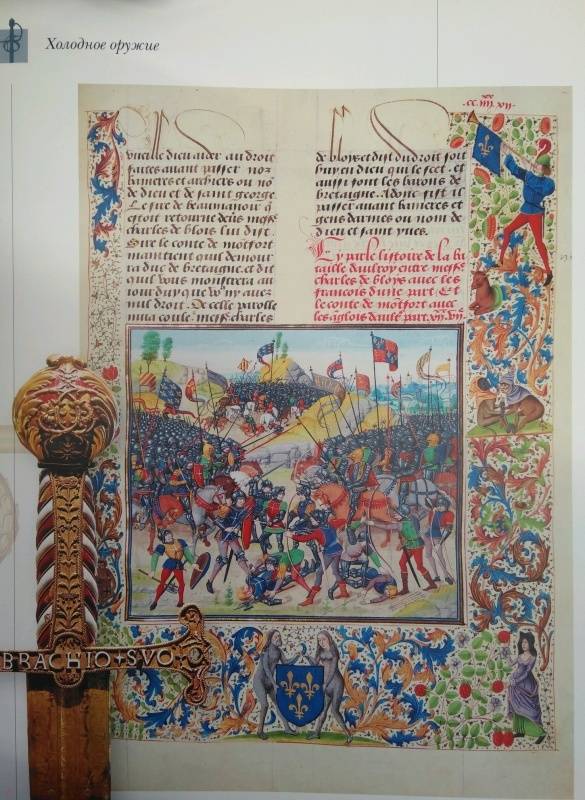 Холодное оружие
.cc.iiii.vii.
vueille dieu aider au droit
faites auant passer noz
banieres et archiers ou nō
de dieu et de saint george
Le sire de beaumanoir q̄
estoit retourne deūs messē
charles de blois lui dist.
Sire le conte de mōtfort
maintient quil demour
ra duc de bretaigne et dit
quil vous monstrera au
iour duy que vous ny auez
nul droit. De celle parolle
mua coule messē charles
de blois et dist du droit soit
huy en dieu qui le scet. et
aussi font les barons de
bretaigne. Adonc fist il
passer auant banieres et
gens darmes ou nom de
dieu et saint yues.
Cy parle listoire de la ba
taille daulroy entre messē
charles de bloys auec les
francois dune part. Et
le conte de mōtfort auec
les āglois dautē part.
BRACHIO + SVO +